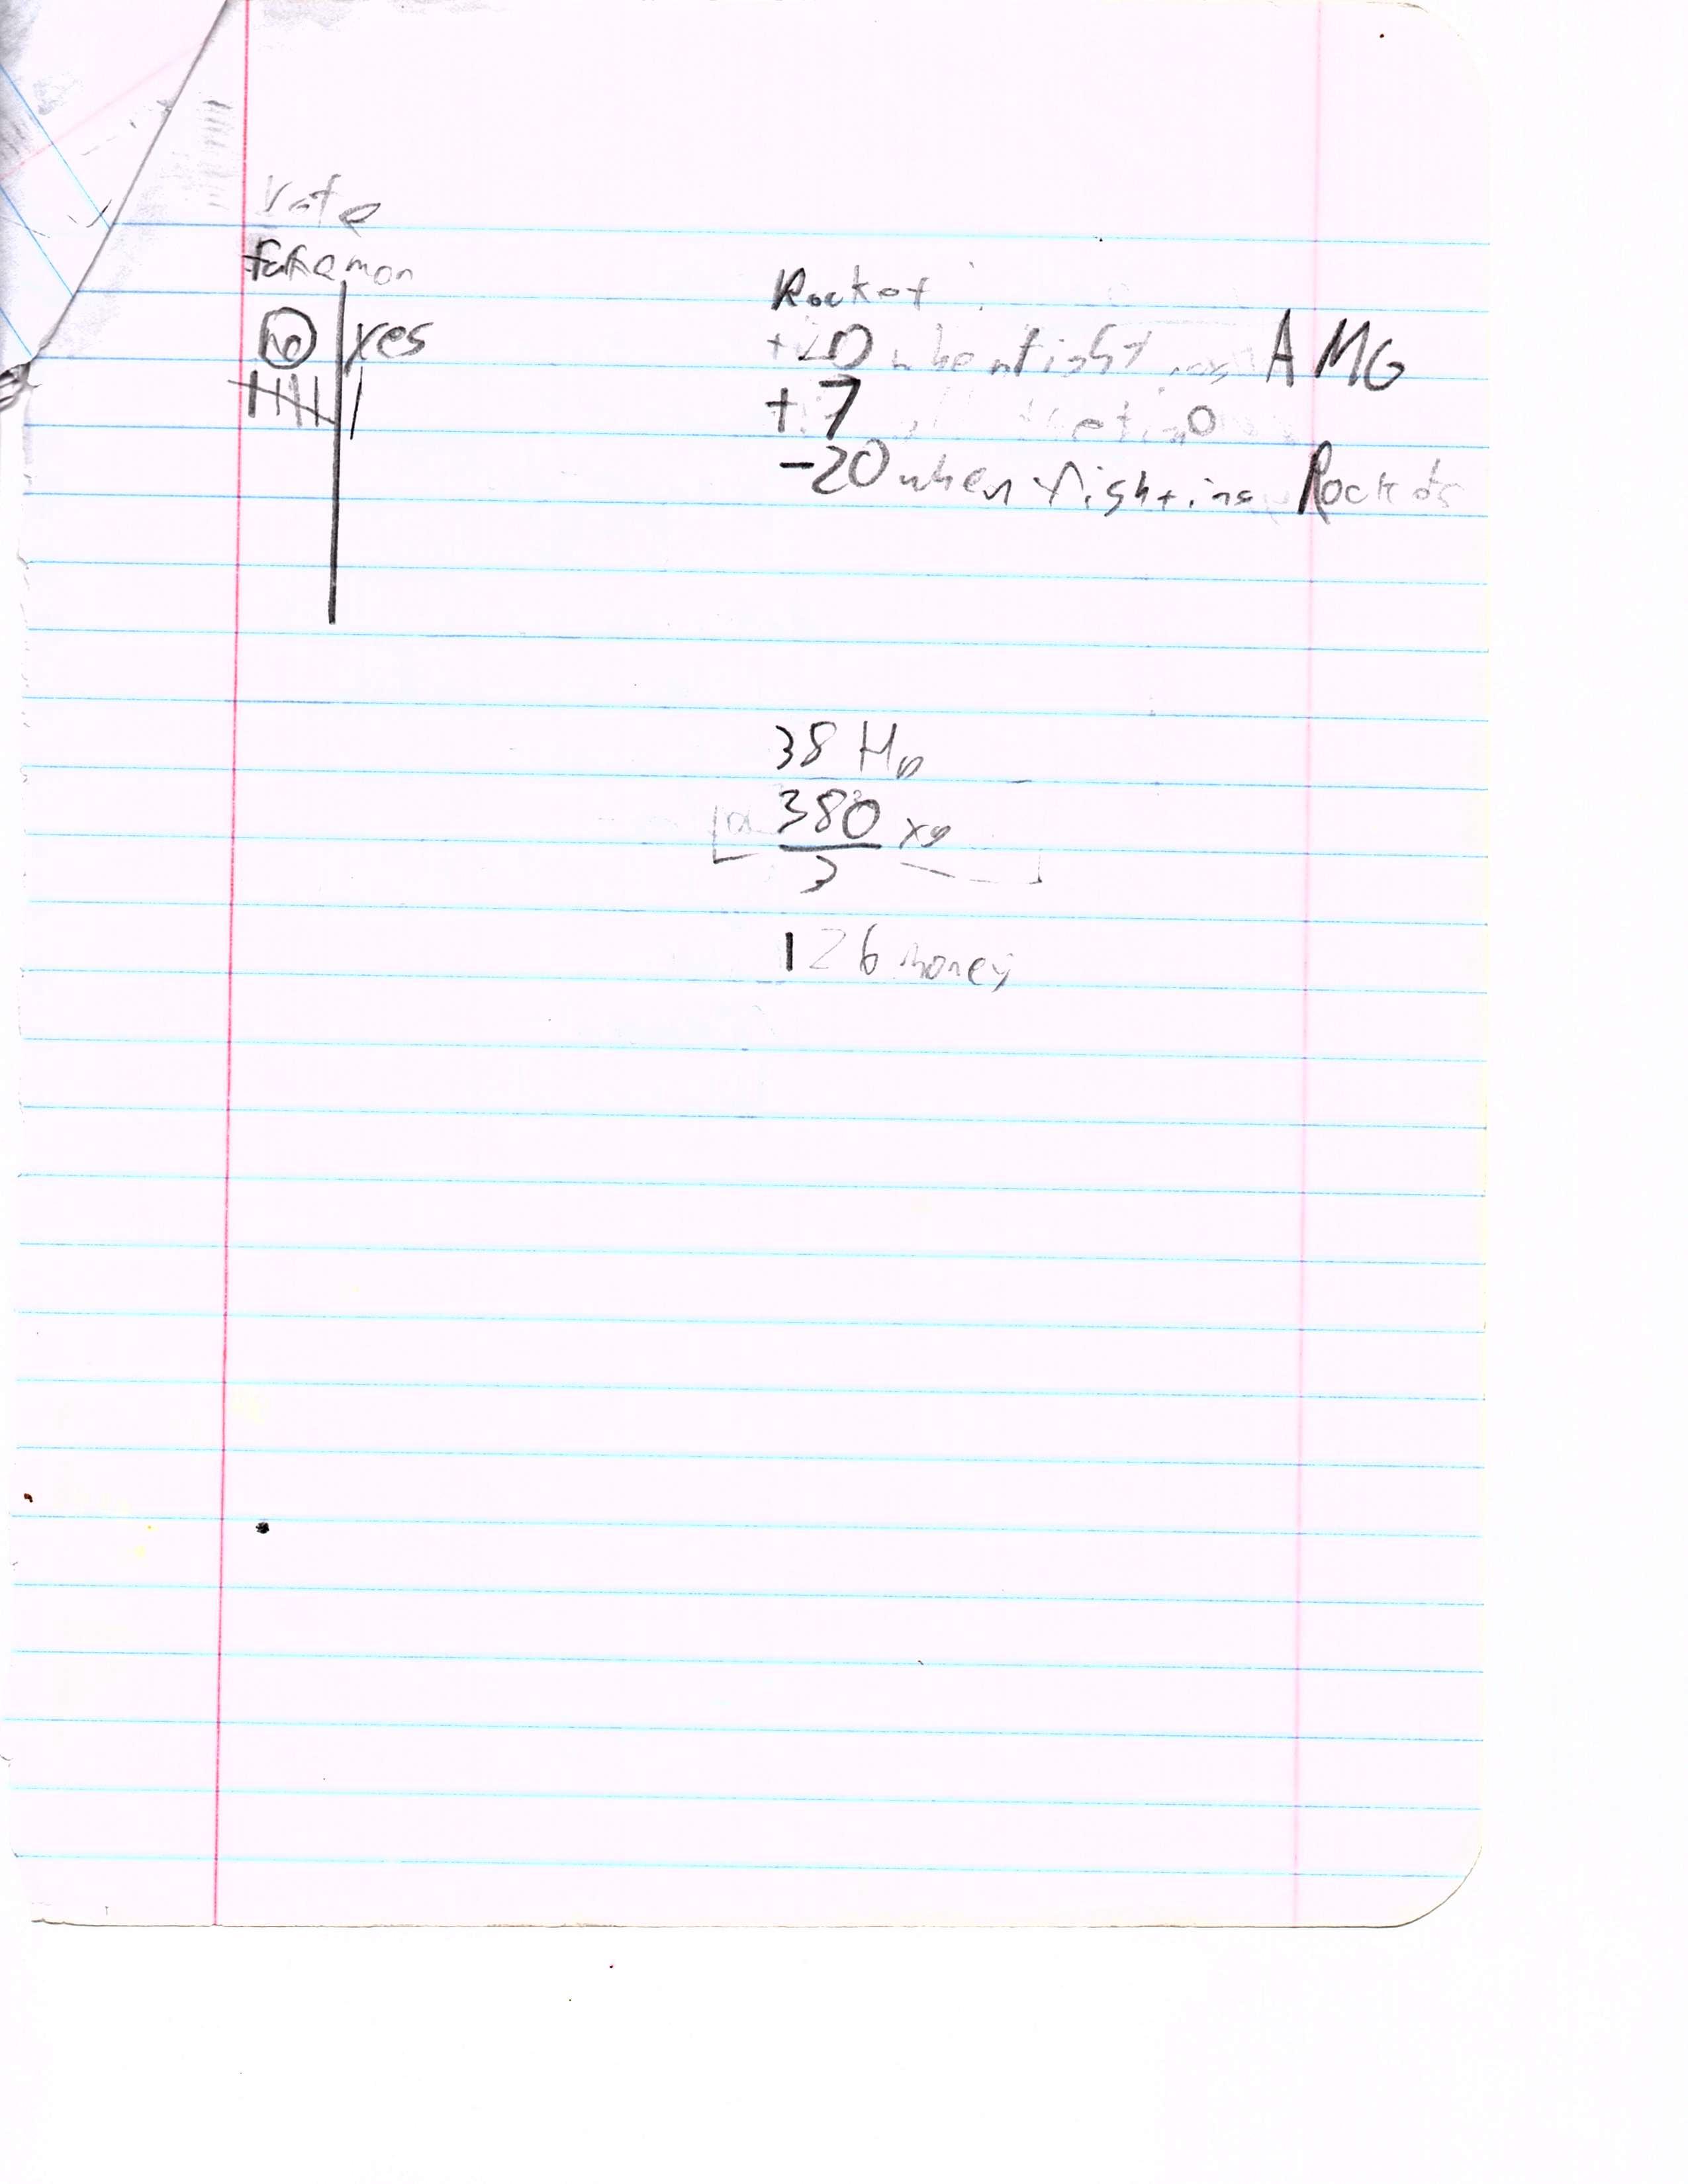 Vote
fakemon
no yes
Rocket
+20 when fighting AMG
+7
-20 when fighting Rockets
38 Hp
380 xp
3
126 money